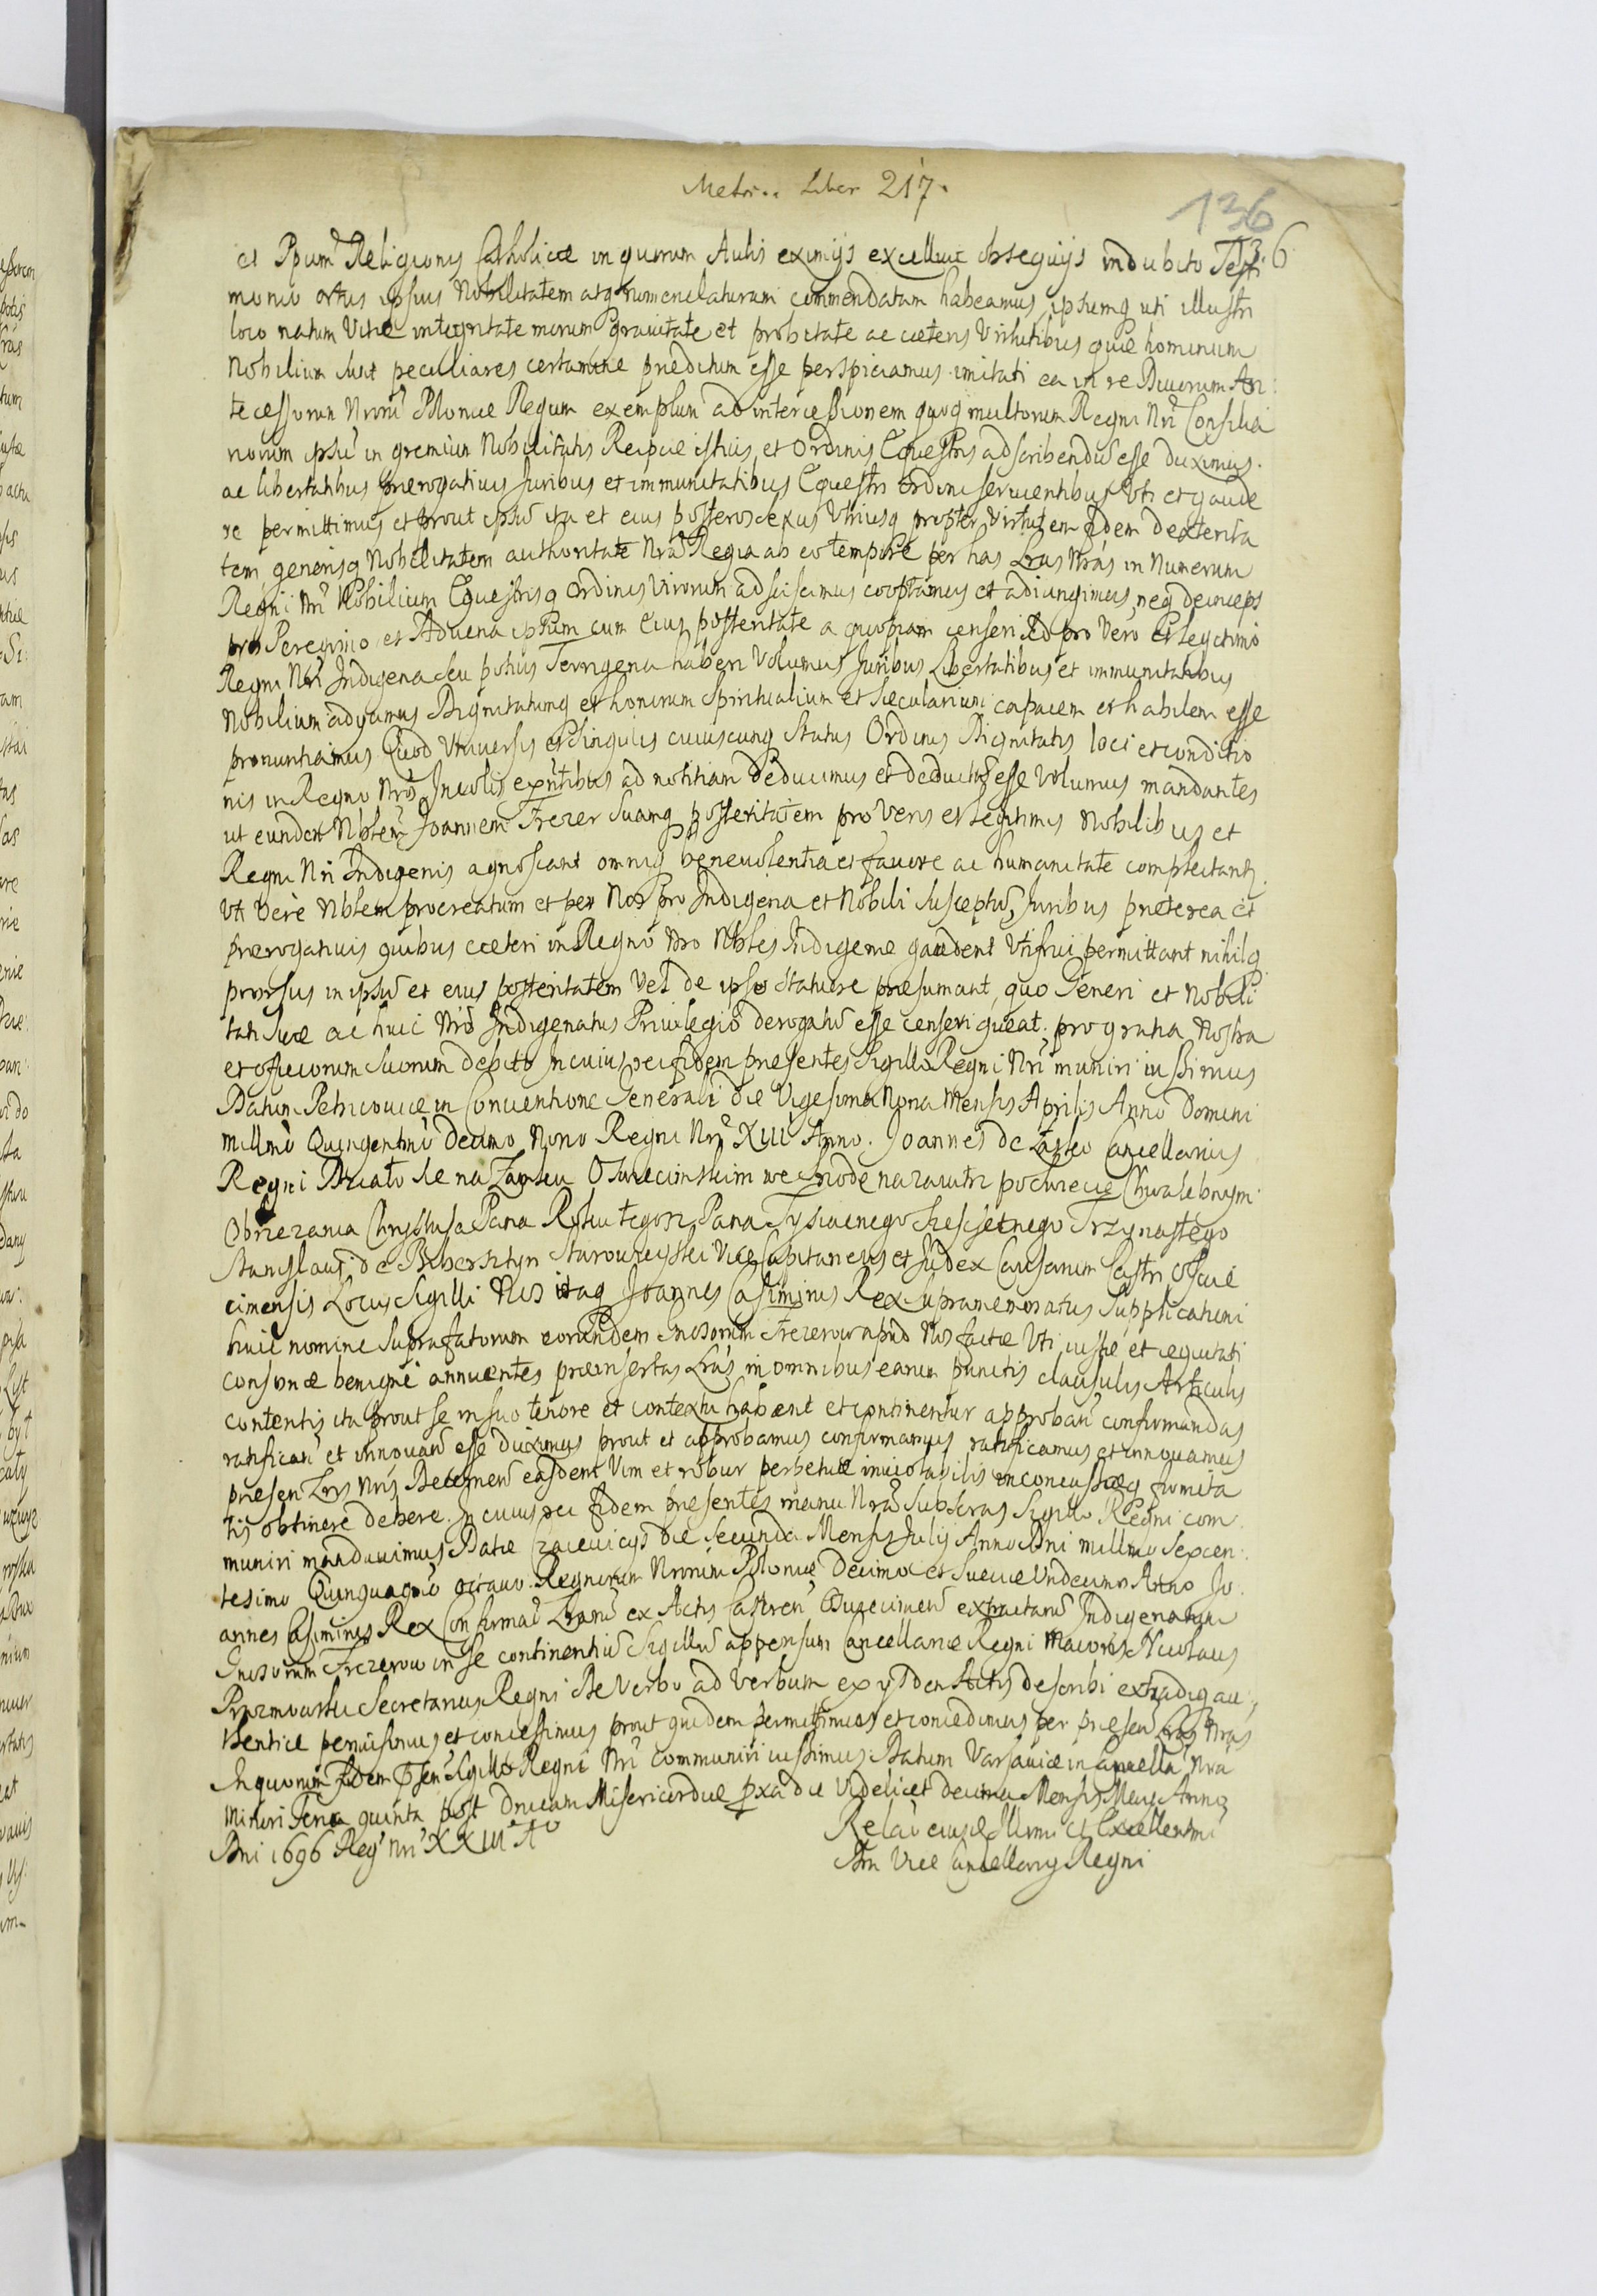 Metr.. Liber 217.
136
136
et Ppum Religionis Catholicæ in quorum Aulis eximijs excelluit obsequijs indubito Testi
monio ortus ipsius Nobilitatem atq nomenclaturam commendatam habeamus, ipsumq uti illustri
loco natum Vitæ integritate morum Gravitate et probitate ac cæteris Virtutibus quæ hominum
Nobilium sunt peculiares certamine præditum esse perspiciamus imitati ea in re Divorum An:
tecessorum Nrorum Poloniæ Regum exemplum ad intercessionem quoq multorum Regni Nri Consilia
riorum ipsu in gremium Nobilitatis Reipcæ istius, et Ordinis Equestris adscribendu esse duximus.
ac libertatibus prærogativis Juribus et immunitatibus Equestri ordini servientibus Uti et gaude
re permittimus et prout ipsu ita et eius posteros sexus Utriusq propter Virtutem fidem dexterita
tem, generisq Nobilitatem authoritate Nra Regia ab eo tempore per has Lras Nras in Numerum
Regni Nri Nobilium Equestrisq Ordinis Virorum adsciscimus cooptamus et adiungimus, neq deinceps
pro Peregrino et Advena ipsum cum Eius posteritate a quopiam censeri sed pro Vero et legitimo
Regni Nri Indigena seu potius Terrigena haberi Volumus Juribus Libertatibus et immunitatibus
Nobilium adjvamus Dignitatumq et honorum Spiritualium et Sæcularium capacem et habilem esse
pronuntiamus Quod Universis et Singulis cuiuscunq Status Ordinis Dignitatis loci et conditio
nis in Regno Nro Incolis exntibus ad notitiam deducimus et deductu esse Volumus mandantes
ut eundem Nblem Joannem Frezer Suamq posteritatem pro Veris et legitimis Nobilibus et
Regni Nri Indigenis agnoscant omniq benevolentia et favore ac humanitate complectantr.
Uti Vere Nblem procreatum et per Nos pro Indigena et Nobili Susceptu, Juribus præterea et
prærogativis quibus cæteri in Regno Nro Nbles Indigenæ gaudent Utifrui permittant nihilq
prorsus in ipsu et eius posteritatem Vel de ipso Statuere præsumant, quo Generi et Nobili
tati suæ ac huic Nro Indigenatus Privilegio derogatu esse censeri queat, pro gratia Nostra
et officiorum suorum debito In cuius rei fidem præsentes Sigillo Regni Nri muniri iussimus
Datum Petricoviæ in Conventione Generali Die Vigesima Nona Mensis Aprilis Anno Domini
millmo Quingentmo Decimo Nono Regni Nri XIII Anno. Joannes de Lasko Cancellarius
Regni Działo se na Zamku Oswiecimskim we Srode nazaiutrz po Swiecie Chwalebnym
Obrzezania Chrystusa Pana Roku tego sz Pana Tysiącnego Szescsetnego Trzynastego
Stanislaus de Biberstyn Starowieyski Vice Capitaneus et Judex Causarum Castri Oswie
cimensis Locus Sigilli Nos itaq Joannes Casimirus Rex supramemoratus Supplicationi
huic nomine suprafatorum eorundem Gnosorum Frezerow apud Nos factæ Uti iustæ et æquitati
consonæ benigne annuentes præinsertas Lras in omnibus earum punctis clausulis Articulis
contentis ita prout se in suo tenore et contextu habent et continentur approban confirmandas
ratifican et innovan esse duximus prout et approbamus confirmamus ratificamus et innovamus
præsen Lrs Nris Decernen easdem Vim et robur perpetuæ inviolabilis inconcussæq firmita
tis obtinere debere. In cuius rei fidem præsentes manu Nra subscras Sigillo Regni com
muniri mandavimus Datæ Czacevicys die Secunda Mensis Julij Anno Dni millmo Sexcen:
tesimo Quinquagmo octavo Regnorum Nrorum Poloniæ Decimo et Sueciæ Undecimo Anno Jo:
annes Casimirus Rex Confirmat Lrarum ex Actis Castren Oswiecimen extractaru Indigenatum
Gnosorum Frezerow in se continentiu Sigillu appensum Cancellariæ Regni Maioris Nicolaus
Secretarius Regni De Verbo ad Verbum ex ijsdem Actis describi extradiq au:
thentice permisimus, et concessimus prout quidem permittimus et concedimus per præsen Lras Nras
In quorum fidem Psen Sigillo Regni Nri communiri iussimus. Datum Varsaviæ in Cancella Nra
Minori Feria quinta post Dnicam Misericordiæ pxa die Videlicet decima Mensis Maij Anno
Dni 1696 Regi Nri XXIII Ao
Relao eiusd Illrmi et Excellentmi
Dni Vice Cancellary Regni